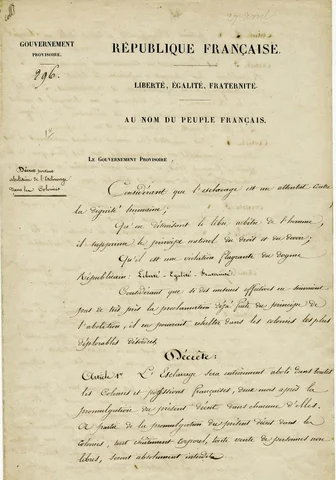 GOUVERNEMENT
PROVISOIRE.
296.
RÉPUBLIQUE FRANÇAISE.
LIBERTÉ, ÉGALITÉ, FRATERNITÉ.
AU NOM DU PEUPLE FRANÇAIS.
LE GOUVERNEMENT PROVISOIRE,
Décret portant
abolition de l'Esclavage
dans les Colonies
Considérant que l'esclavage est un attentat contre
la dignité humaine;
Qu'en détruisant le libre arbitre de l'homme,
il supprime le principe naturel du droit et du devoir;
Qu'il est une violation flagrante du dogme
Républicain: Liberté - Egalité - Fraternité.
Considérant que si des mesures effectives ne suivaient
pas de très près la proclamation déjà faite du principe de
l'abolition, il en pourrait résulter dans les colonies les plus
déplorables désordres,
Décrète:
Article 1er L'Esclavage sera entièrement aboli dans toutes
les Colonies et possessions françaises, deux mois après la
promulgation du présent décret dans chacune d'elles.
A partir de la promulgation du présent décret dans les
colonies, tout châtiment corporel, toute vente de personnes non
libres, seront absolument interdits